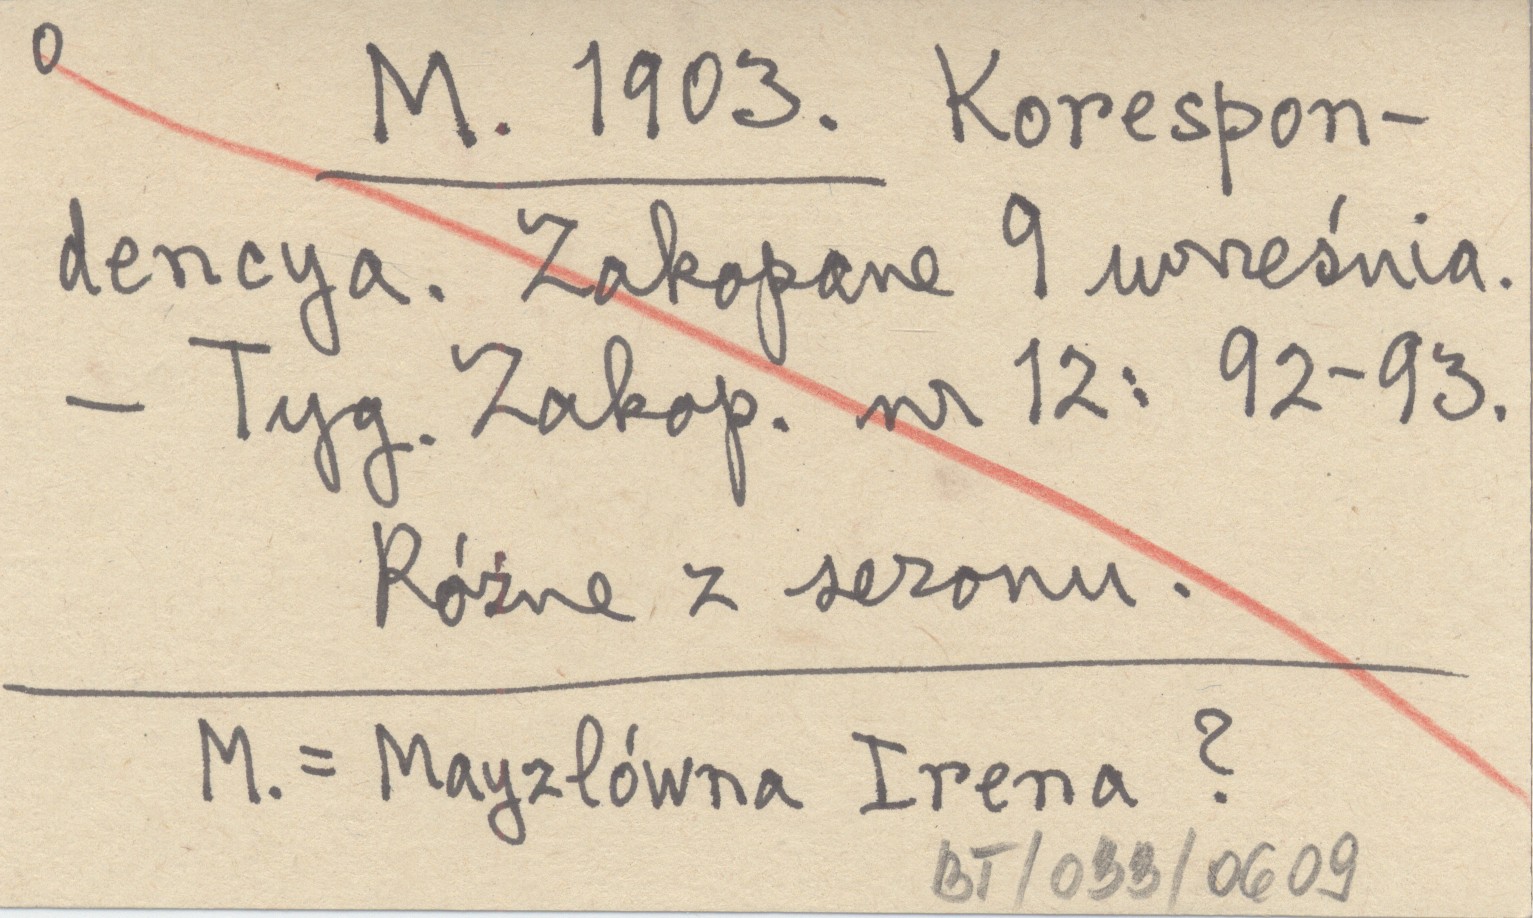 0
M. 1903. Korespon-
dencya. Zakopane 9 września.
- Tyg. Zakop. nr 12: 92-93.
Różne z sezonu.
M. = Mayzlówna Irena?
BT/033/0609